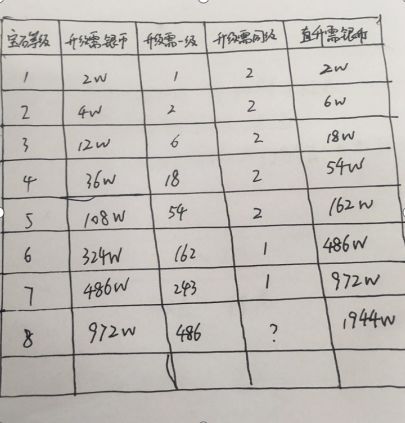 宝石等级 升级需银币 升级需一级 升级需同级 直升需银币
1 2W 1 2 2W
2 4W 2 2 6W
3 12W 6 2 18W
4 36W 18 2 54W
5 108W 54 2 162W
6 324W 162 1 486W
7 486W 243 1 972W
8 972W 486 ? 1944W